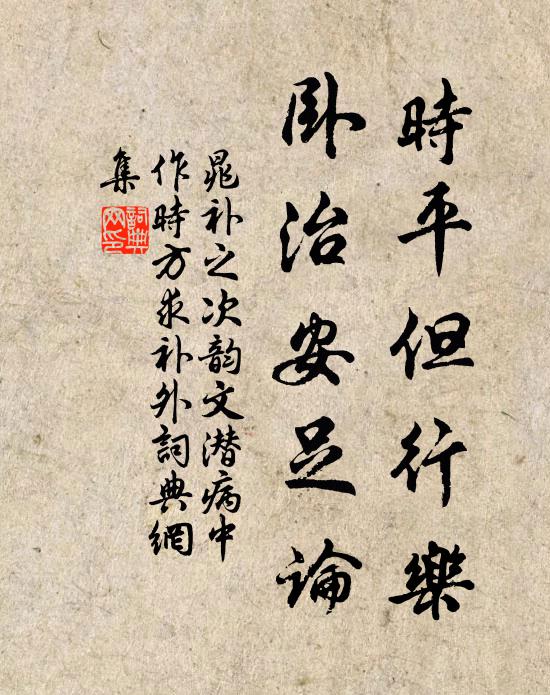 時平但行樂
卧治安足論
晁补之次韵文潜病中
作時方求补外詞典網
集
詞典
网印